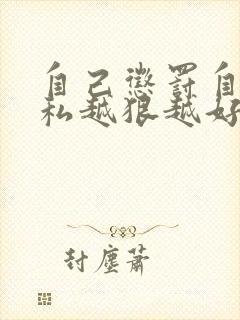 自己懲罰自
私越狠越好
封塵蕭